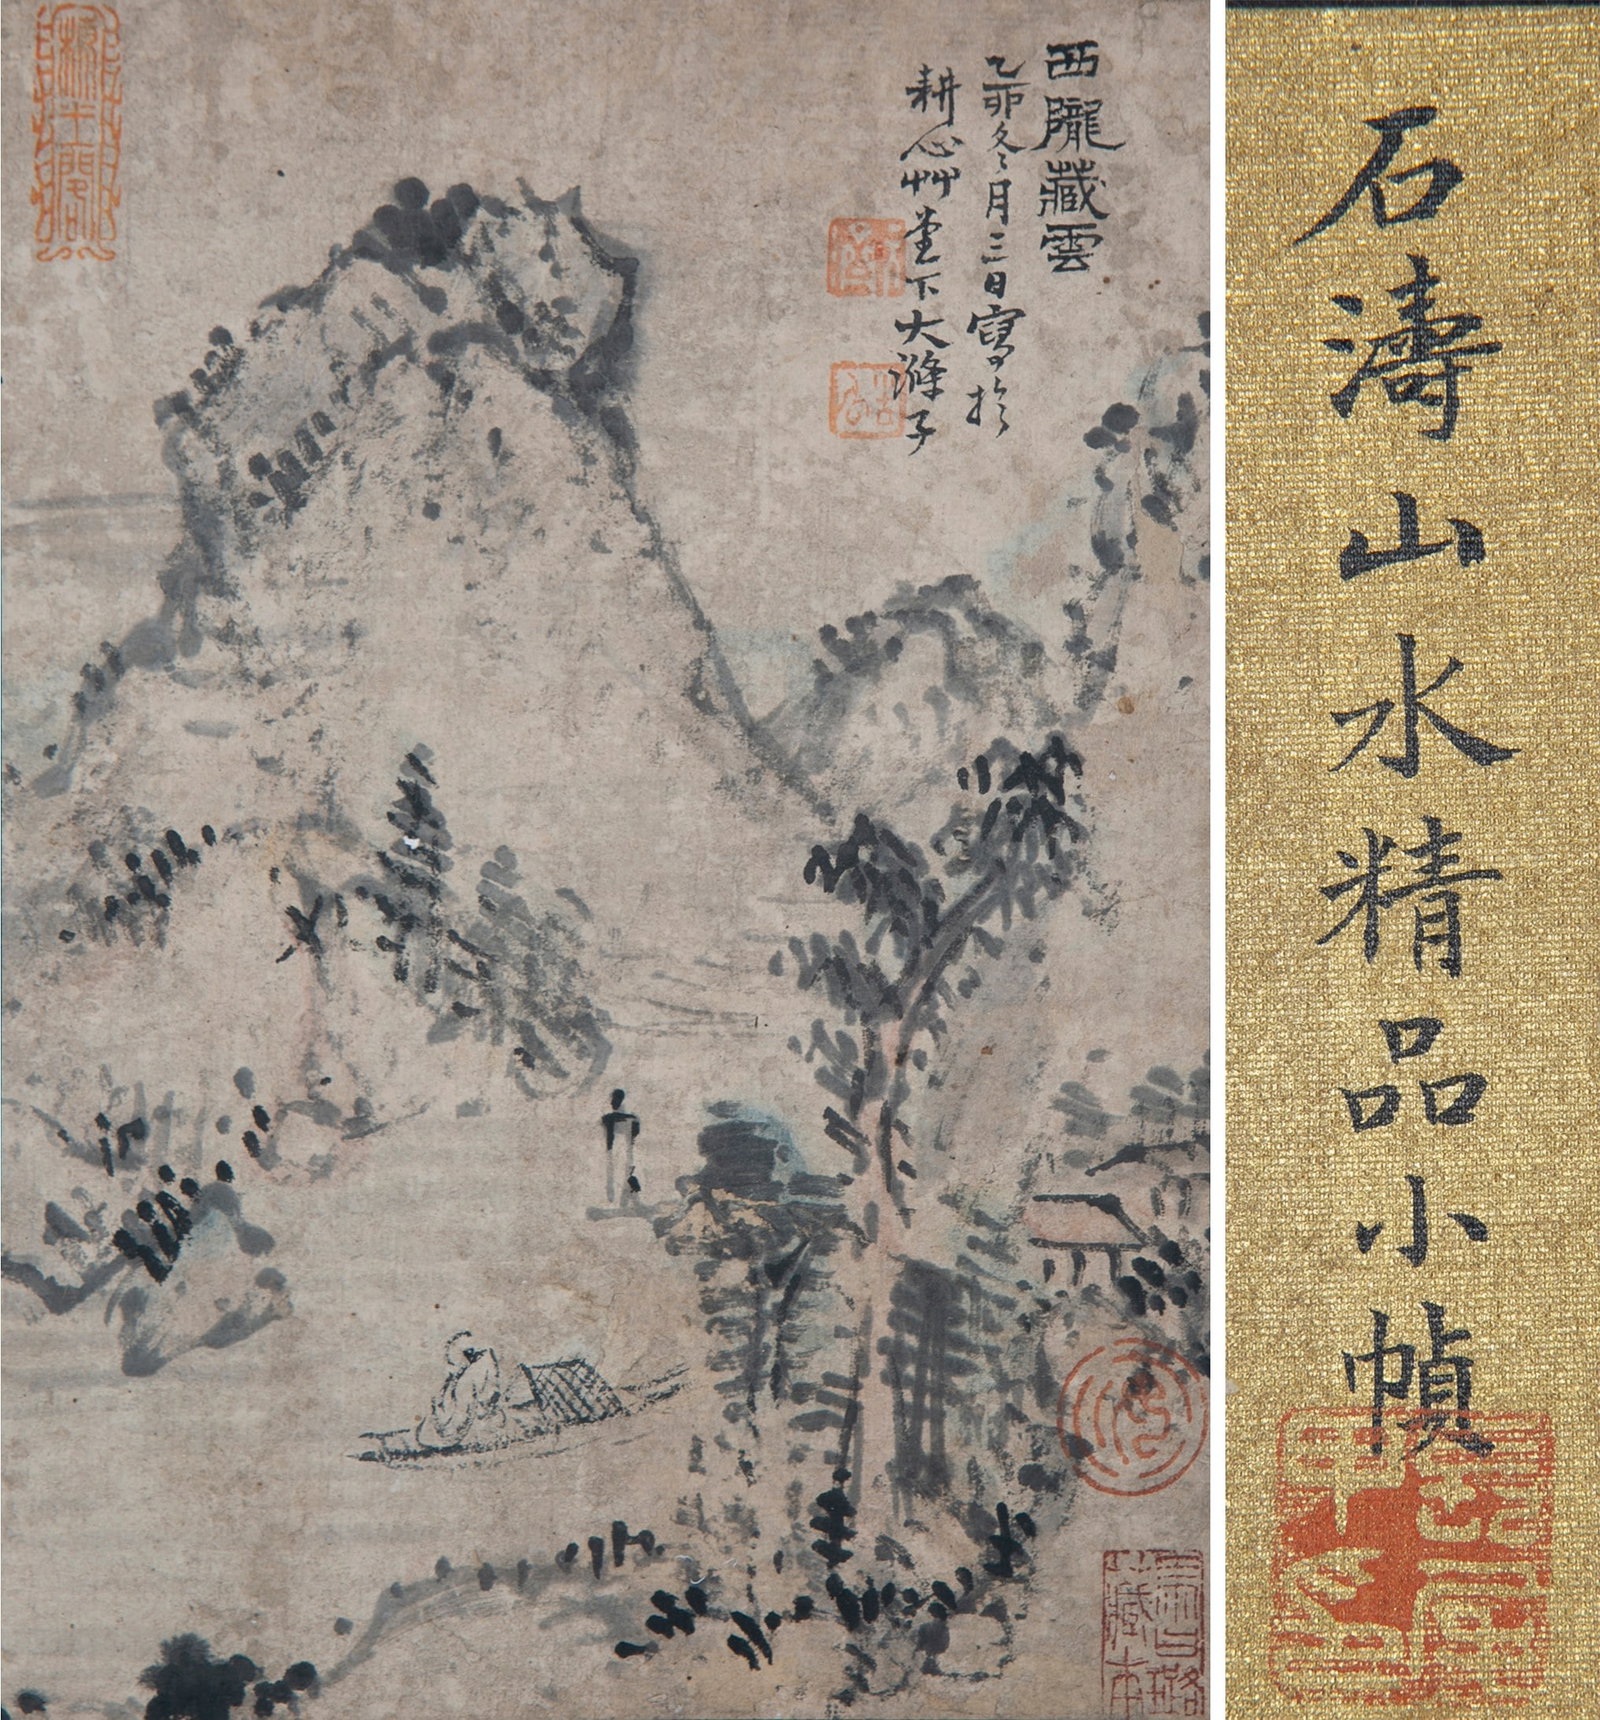 西隴藏雲
乙卯冬月三日寫於
耕心艸堂下大滌子
石濤山水精品小幀